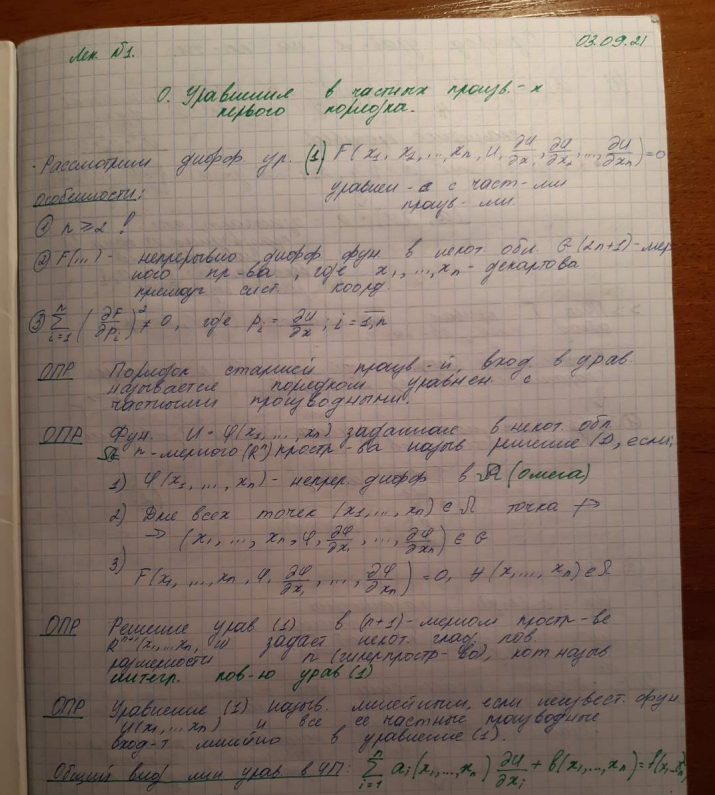 Лек №1.
03.09.21
0. Уравнения в частных произв.-х
первого порядка.
· Рассмотрим дифф. ур. (1) F(x₁, x₂, ..., xₙ, u, ∂u/∂x₁, ∂u/∂x₂, ..., ∂u/∂xₙ) = 0
особенности:
уравнен-е с част-ми
произв-ми
① n ≥ 2 !
② F(...) - непрерывно дифф фун в некот. обл G (2n+1)-мер
ного пр-ва, где x₁, ..., xₙ - декартова
прямоуг сист коорд.
③ ∑ᵢ₌₁ⁿ (∂F/∂pᵢ)² ≠ 0, где pᵢ = ∂u/∂x ; i = 1,n
ОПР Порядок старшей произв-й, вход. в урав.
называется порядком уравнен. с
частными производными.
ОПР Фун. u = φ(x₁, ..., xₙ) заданная в некот. обл
Ω n-мерного (Rⁿ) простр-ва назыв решение (1), если:
1) φ(x₁, ..., xₙ) - непрер дифф в Ω (омега)
2) Для всех точек (x₁, ..., xₙ) ∈ Ω точка
→ (x₁, ..., xₙ, φ, ∂φ/∂x₁, ..., ∂φ/∂xₙ) ∈ G
3)
F(x₁, ..., xₙ, φ, ∂φ/∂x₁, ..., ∂φ/∂xₙ) = 0, ∀ (x₁, ..., xₙ) ∈ Ω
ОПР Решение урав (1) в (n+1)-мерном простр-ве
Rⁿ⁺¹(x₁, ... xₙ, u) задает некот. глад. пов.
размерности n (гиперпростр-во), кот назыв
интегр. пов-ю урав (1)
ОПР Уравнение (1) назыв. линейным, если неизвест. фун
u(x₁, ... xₙ) и все её частные производные
вход-т линейно в уравнение (1).
Общий вид лин урав в ЧП: ∑ᵢ₌₁ⁿ aᵢ(x₁, ..., xₙ) ∂u/∂xᵢ + b(x₁, ..., xₙ) = f(x₁, ..xₙ)